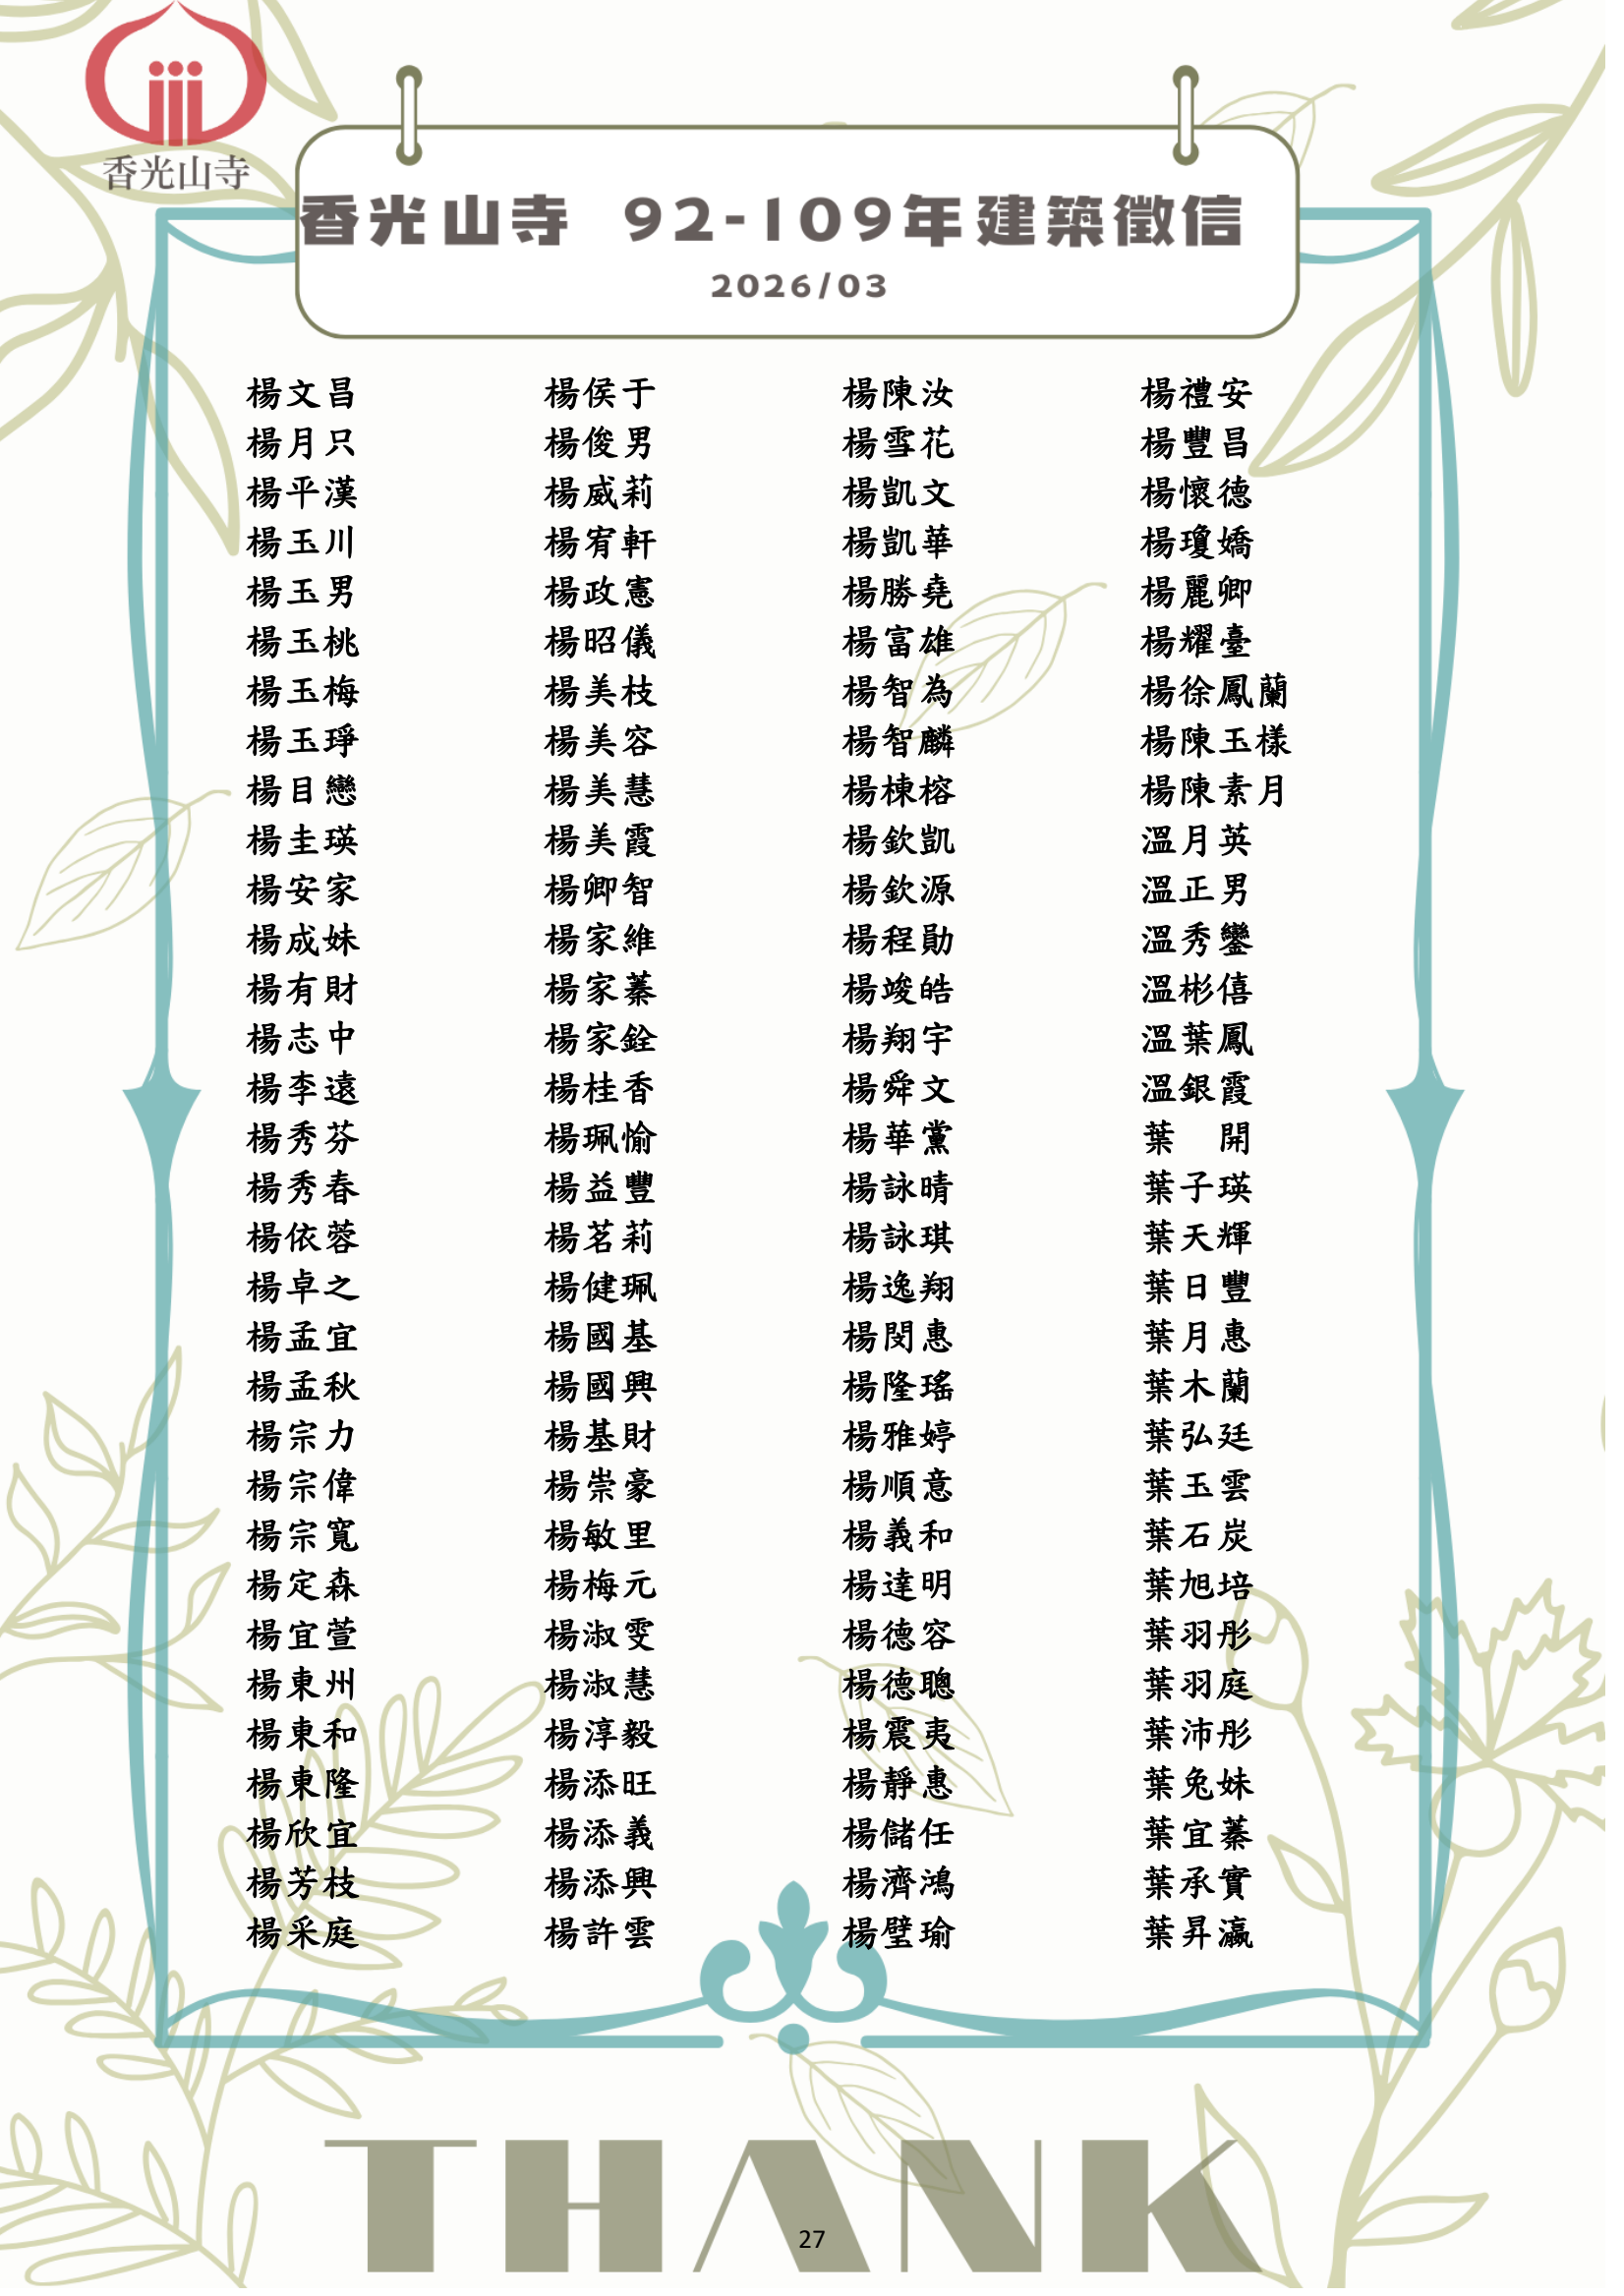 香光山寺
香光山寺 92-109年建築徵信
2026/03
楊文昌 楊侯于 楊陳汝 楊禮安
楊月只 楊俊男 楊雪花 楊豐昌
楊平漢 楊威莉 楊凱文 楊懷德
楊玉川 楊宥軒 楊凱華 楊瓊嬌
楊玉男 楊政憲 楊勝堯 楊麗卿
楊玉桃 楊昭儀 楊富雄 楊耀臺
楊玉梅 楊美枝 楊智為 楊徐鳳蘭
楊玉琤 楊美容 楊智麟 楊陳玉樣
楊目戀 楊美慧 楊棟榕 楊陳素月
楊圭瑛 楊美霞 楊欽凱 溫月英
楊安家 楊卿智 楊欽源 溫正男
楊成妹 楊家維 楊程勛 溫秀鑾
楊有財 楊家蓁 楊竣皓 溫彬僖
楊志中 楊家銓 楊翔宇 溫葉鳳
楊李遠 楊桂香 楊舜文 溫銀霞
楊秀芬 楊珮愉 楊華黨 葉　開
楊秀春 楊益豐 楊詠晴 葉子瑛
楊依蓉 楊茗莉 楊詠琪 葉天輝
楊卓之 楊健珮 楊逸翔 葉日豐
楊孟宜 楊國基 楊閔惠 葉月惠
楊孟秋 楊國興 楊隆瑤 葉木蘭
楊宗力 楊基財 楊雅婷 葉弘廷
楊宗偉 楊崇豪 楊順意 葉玉雲
楊宗寬 楊敏里 楊義和 葉石炭
楊定森 楊梅元 楊達明 葉旭培
楊宜萱 楊淑雯 楊德容 葉羽彤
楊東州 楊淑慧 楊德聰 葉羽庭
楊東和 楊淳毅 楊震夷 葉沛彤
楊東隆 楊添旺 楊靜惠 葉兔妹
楊欣宜 楊添義 楊儲任 葉宜蓁
楊芳枝 楊添興 楊濟鴻 葉承實
楊采庭 楊許雲 楊璧瑜 葉昇瀛
THANK
27